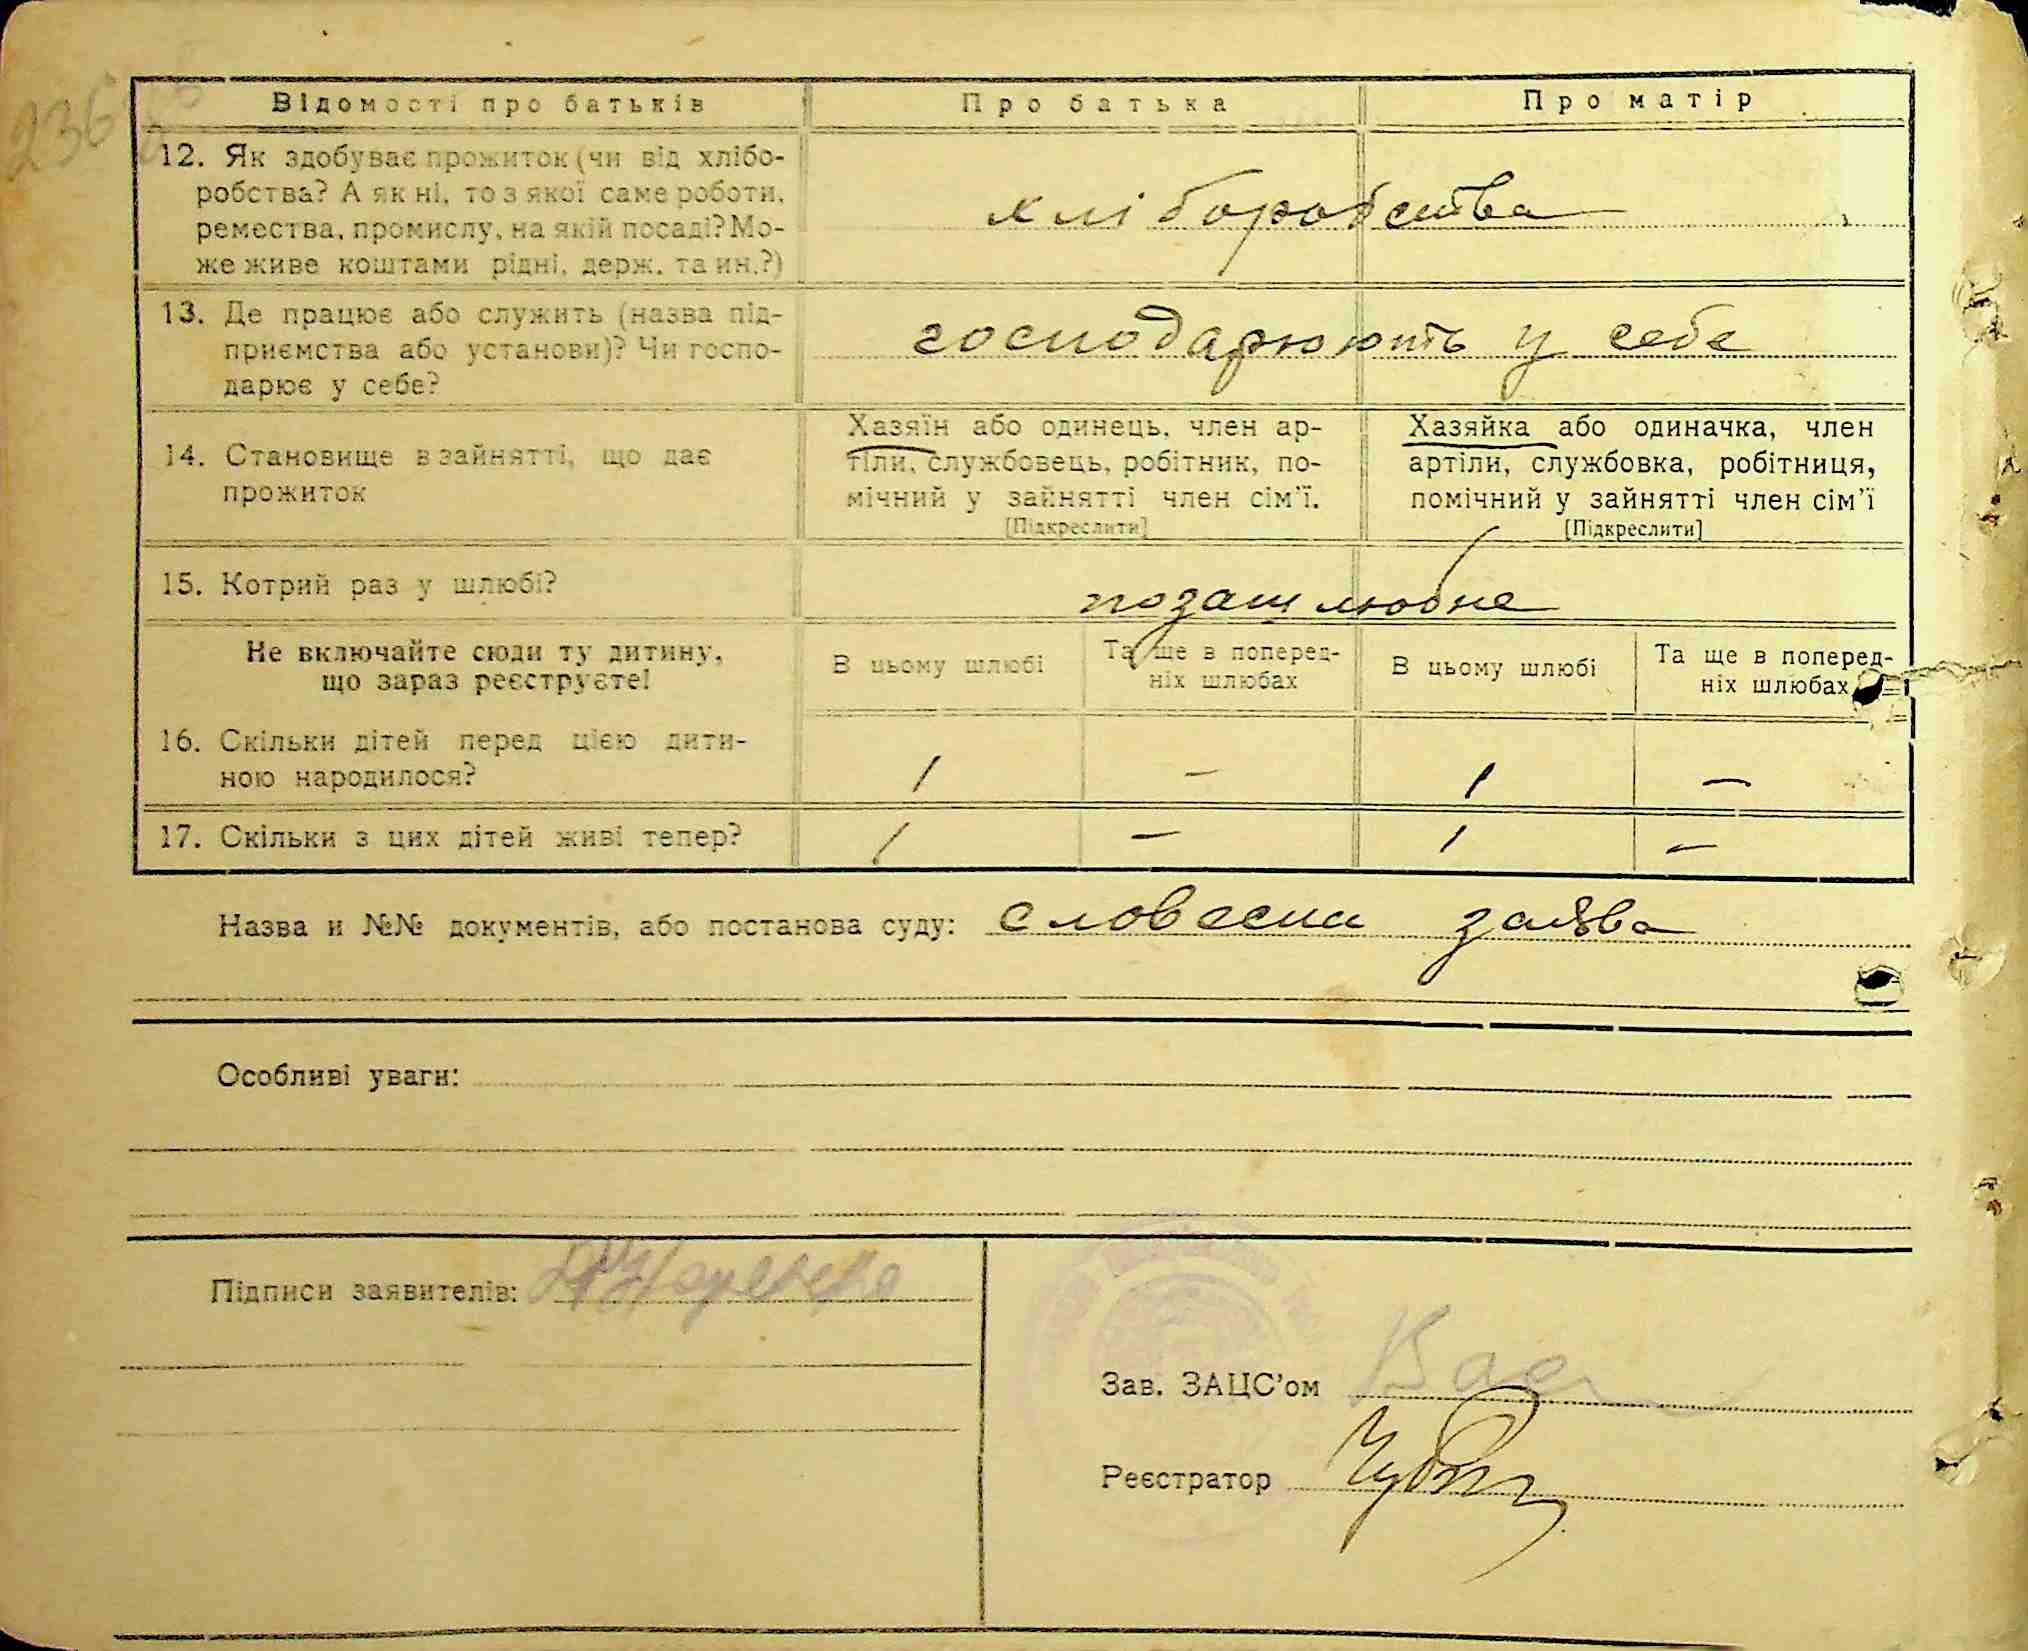 236
Відомості про батьків Про батька Про матір
12. Як здобуває прожиток (чи від хлібо-
робства? А як ні, то з якої саме роботи,
ремества, промислу, на якій посаді? Мо-
же живе коштами рідні, держ. та ин.?)
хліборобства
13. Де працює або служить (назва під-
приємства або установи)? Чи госпо-
дарює у себе?
господарюють у себе
14. Становище в зайнятті, що дає
прожиток
Хазяїн або одинець, член ар-
тіли, службовець, робітник, по-
мічний у зайнятті член сім'ї.
[Підкреслити]
Хазяйка або одиначка, член
артіли, службовка, робітниця,
помічний у зайнятті член сім'ї
[Підкреслити]
15. Котрий раз у шлюбі? позашлюбне
Не включайте сюди ту дитину,
що зараз реєструєте!
В цьому шлюбі
Та ще в поперед-
ніх шлюбах
В цьому шлюбі
Та ще в поперед-
ніх шлюбах
16. Скільки дітей перед цією дити-
ною народилося?
1 – 1 –
17. Скільки з цих дітей живі тепер? 1 – 1 –
Назва и №№ документів, або постанова суду: словесна заява
Особливі уваги:
Підписи заявителів:
Зав. ЗАЦС'ом
Реєстратор